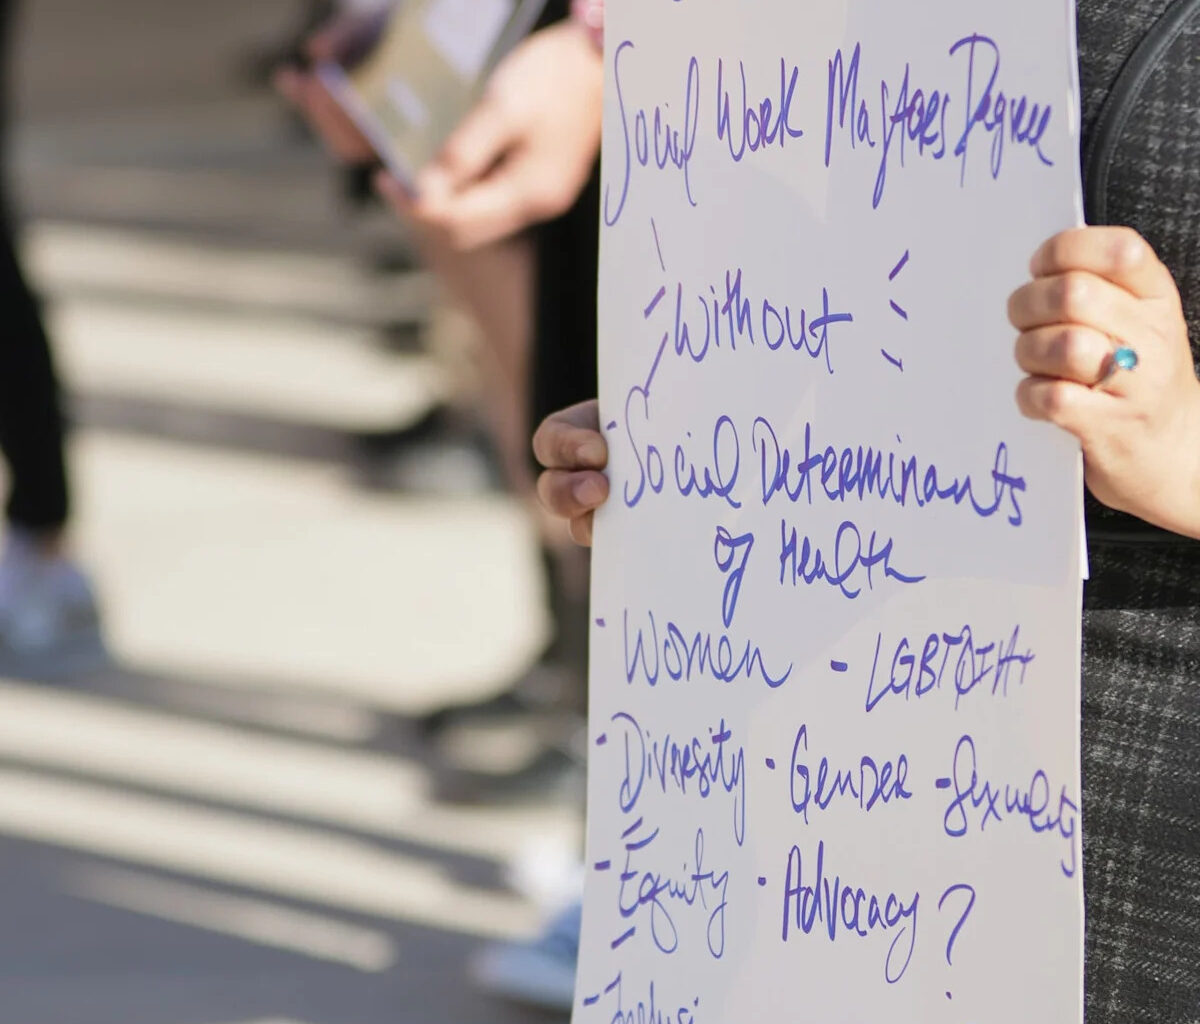 Social Work Masters Degree
Without
- Social Determinants
of Health
- Women - LGBTQIA+
- Diversity - Gender - Sexuality
- Equity - Advocacy?
- Inclusi